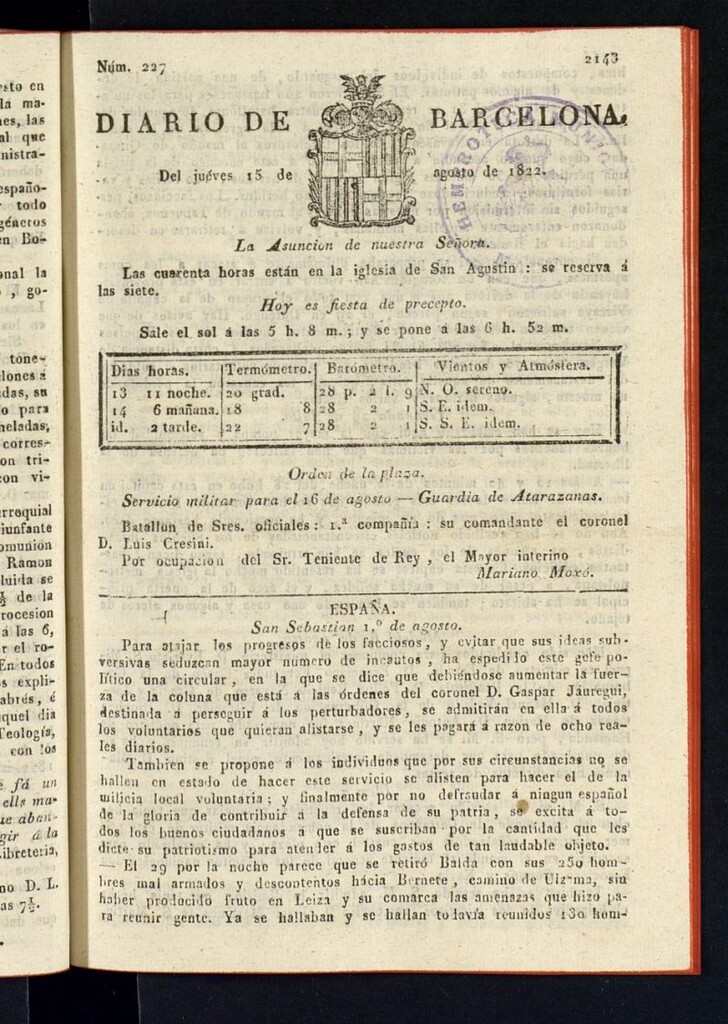 esto en
la ma-
nes, las
al que
nistra-
españo-
todo
géneros
en Bo-
onal la
, go-
tone-
lones á
das, su
o para
neladas,
corres-
on tri-
con vi-
rroquial
iunfante
omunion
Ramon
luida se
½ de la
rocesion
á las 6,
r el ro-
En todos
s expli-
abrés, é
quel dia
Teología,
con los
fá un
ells ma-
ue aban-
gir á la
ibretería,
no D. L.
as 7½.
Núm. 227
2143
DIARIO DE BARCELONA,
Del juéves 15 de agosto de 1822.
HEMEROTECA
La Asuncion de nuestra Señora.
Las cuarenta horas están en la iglesia de San Agustin : se reserva á
las siete.
Hoy es fiesta de precepto.
Sale el sol á las 5 h. 8 m. ; y se pone á las 6 h. 52 m.
Dias horas. Termómetro. Barómetro. Vientos y Atmósfera.
13 11 noche. 20 grad. 28 p. 2 l. 9 N. O. sereno.
14 6 mañana. 18 8 28 2 1 S. E. idem.
id. 2 tarde. 22 7 28 2 1 S. S. E. idem.
Orden de la plaza.
Servicio militar para el 16 de agosto — Guardia de Atarazanas.
Batallon de Sres. oficiales : 1.ª compañía : su comandante el coronel
D. Luis Cresini.
Por ocupacion del Sr. Teniente de Rey , el Mayor interino
Mariano Moxó.
ESPAÑA.
San Sebastian 1.º de agosto.
Para atajar los progresos de los facciosos, y evitar que sus ideas sub-
versivas seduzcan mayor número de incautos , ha espedido este gefe po-
lítico una circular , en la que se dice que debiéndose aumentar la fuer-
za de la coluna que está á las órdenes del coronel D. Gaspar Jáuregui,
destinada á perseguir á los perturbadores, se admitirán en ella á todos
los voluntarios que quieran alistarse , y se les pagará á razon de ocho rea-
les diarios.
Tambien se propone á los individuos que por sus circunstancias no se
hallen en estado de hacer este servicio se alisten para hacer el de la
milicia local voluntaria ; y finalmente por no defraudar á ningun español
de la gloria de contribuir á la defensa de su patria, se excita á to-
dos los buenos ciudadanos á que se suscriban por la cantidad que les
dicte su patriotismo para atender á los gastos de tan laudable objeto.
— El 29 por la noche parece que se retiró Balda con sus 250 hom-
bres mal armados y descontentos hácia Bernete , camino de Ulzama, sin
haber producido fruto en Leiza y su comarca las amenazas que hizo pa-
ra reunir gente. Ya se hallaban y se hallan todavía reunidos 130 hom-